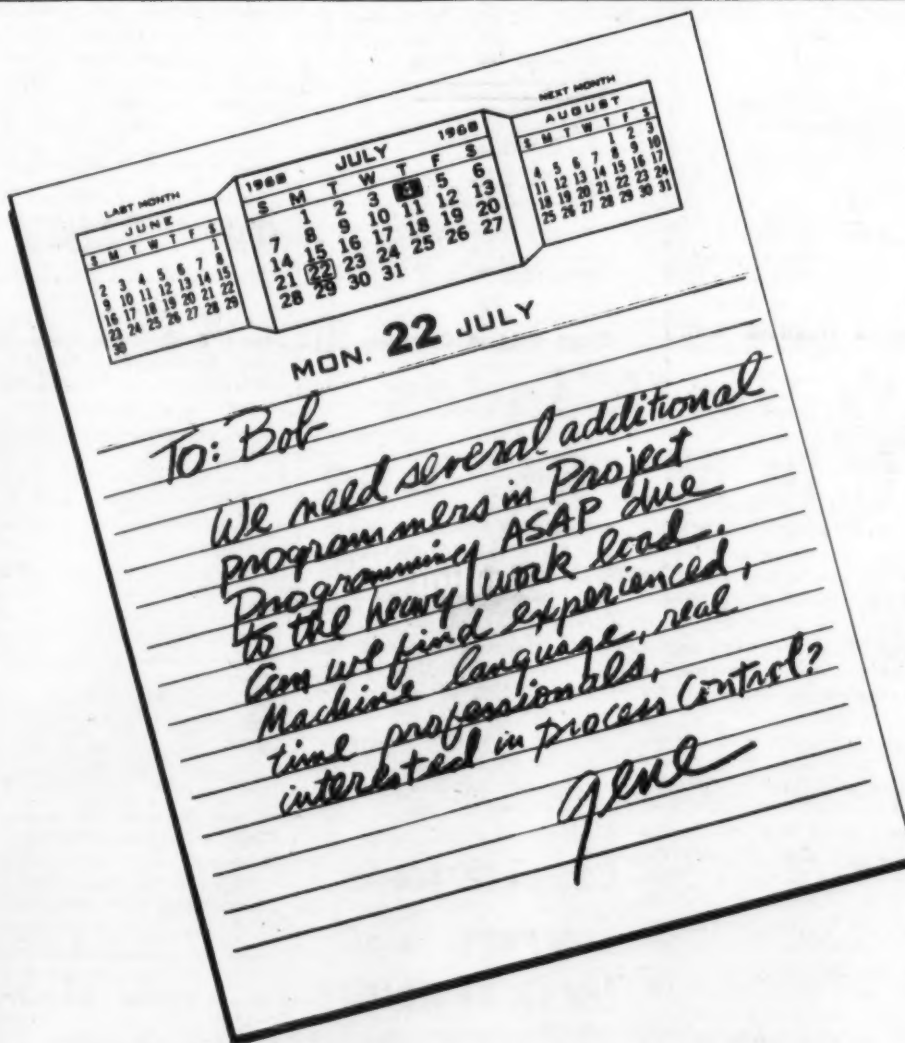 LAST MONTH
JUNE
S M T W T F S
1
2 3 4 5 6 7 8
9 10 11 12 13 14 15
16 17 18 19 20 21 22
23 24 25 26 27 28 29
30
1968 JULY 1968
S M T W T F S
1 2 3 4 5 6
7 8 9 10 11 12 13
14 15 16 17 18 19 20
21 22 23 24 25 26 27
28 29 30 31
NEXT MONTH
AUGUST
S M T W T F S
1 2 3
4 5 6 7 8 9 10
11 12 13 14 15 16 17
18 19 20 21 22 23 24
25 26 27 28 29 30 31
MON. 22 JULY
To: Bob
We need several additional
programmers in Project
Programming ASAP due
to the heavy work load.
Can we find experienced,
Machine language, real
time professionals,
interested in process control?
Gene